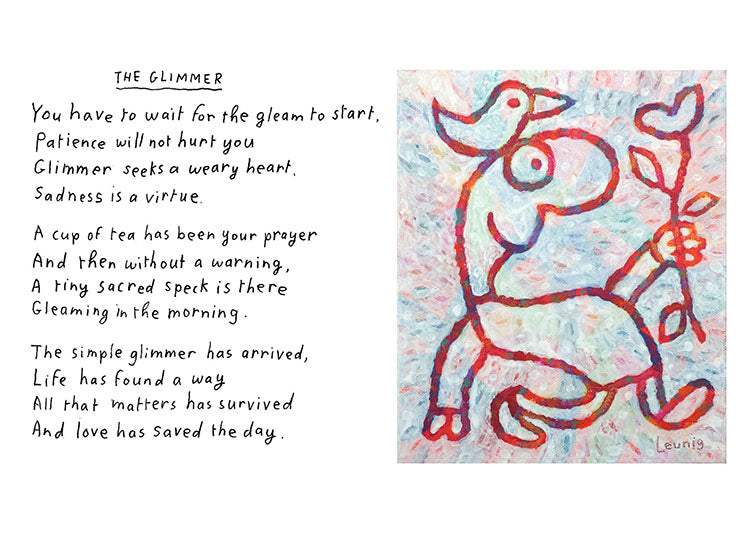 THE GLIMMER
You have to wait for the gleam to start.
Patience will not hurt you
Glimmer seeks a weary heart.
Sadness is a virtue.
A cup of tea has been your prayer
And then without a warning,
A tiny sacred speck is there
Gleaming in the morning.
The simple glimmer has arrived,
Life has found a way
All that matters has survived
And love has saved the day.
Leunig